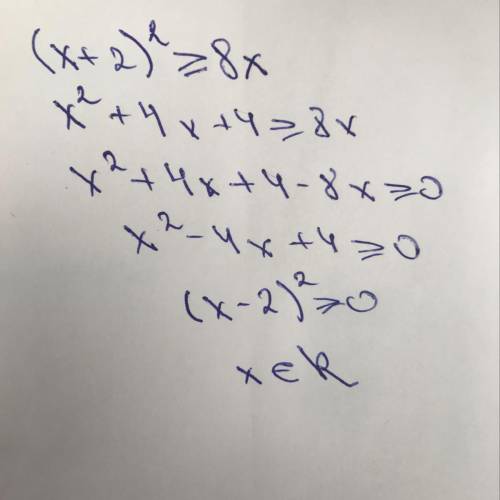 (x+2)² ≥ 8x
x² + 4x + 4 ≥ 8x
x² + 4x + 4 - 8x ≥ 0
x² - 4x + 4 ≥ 0
(x - 2)² ≥ 0
x ∈ R